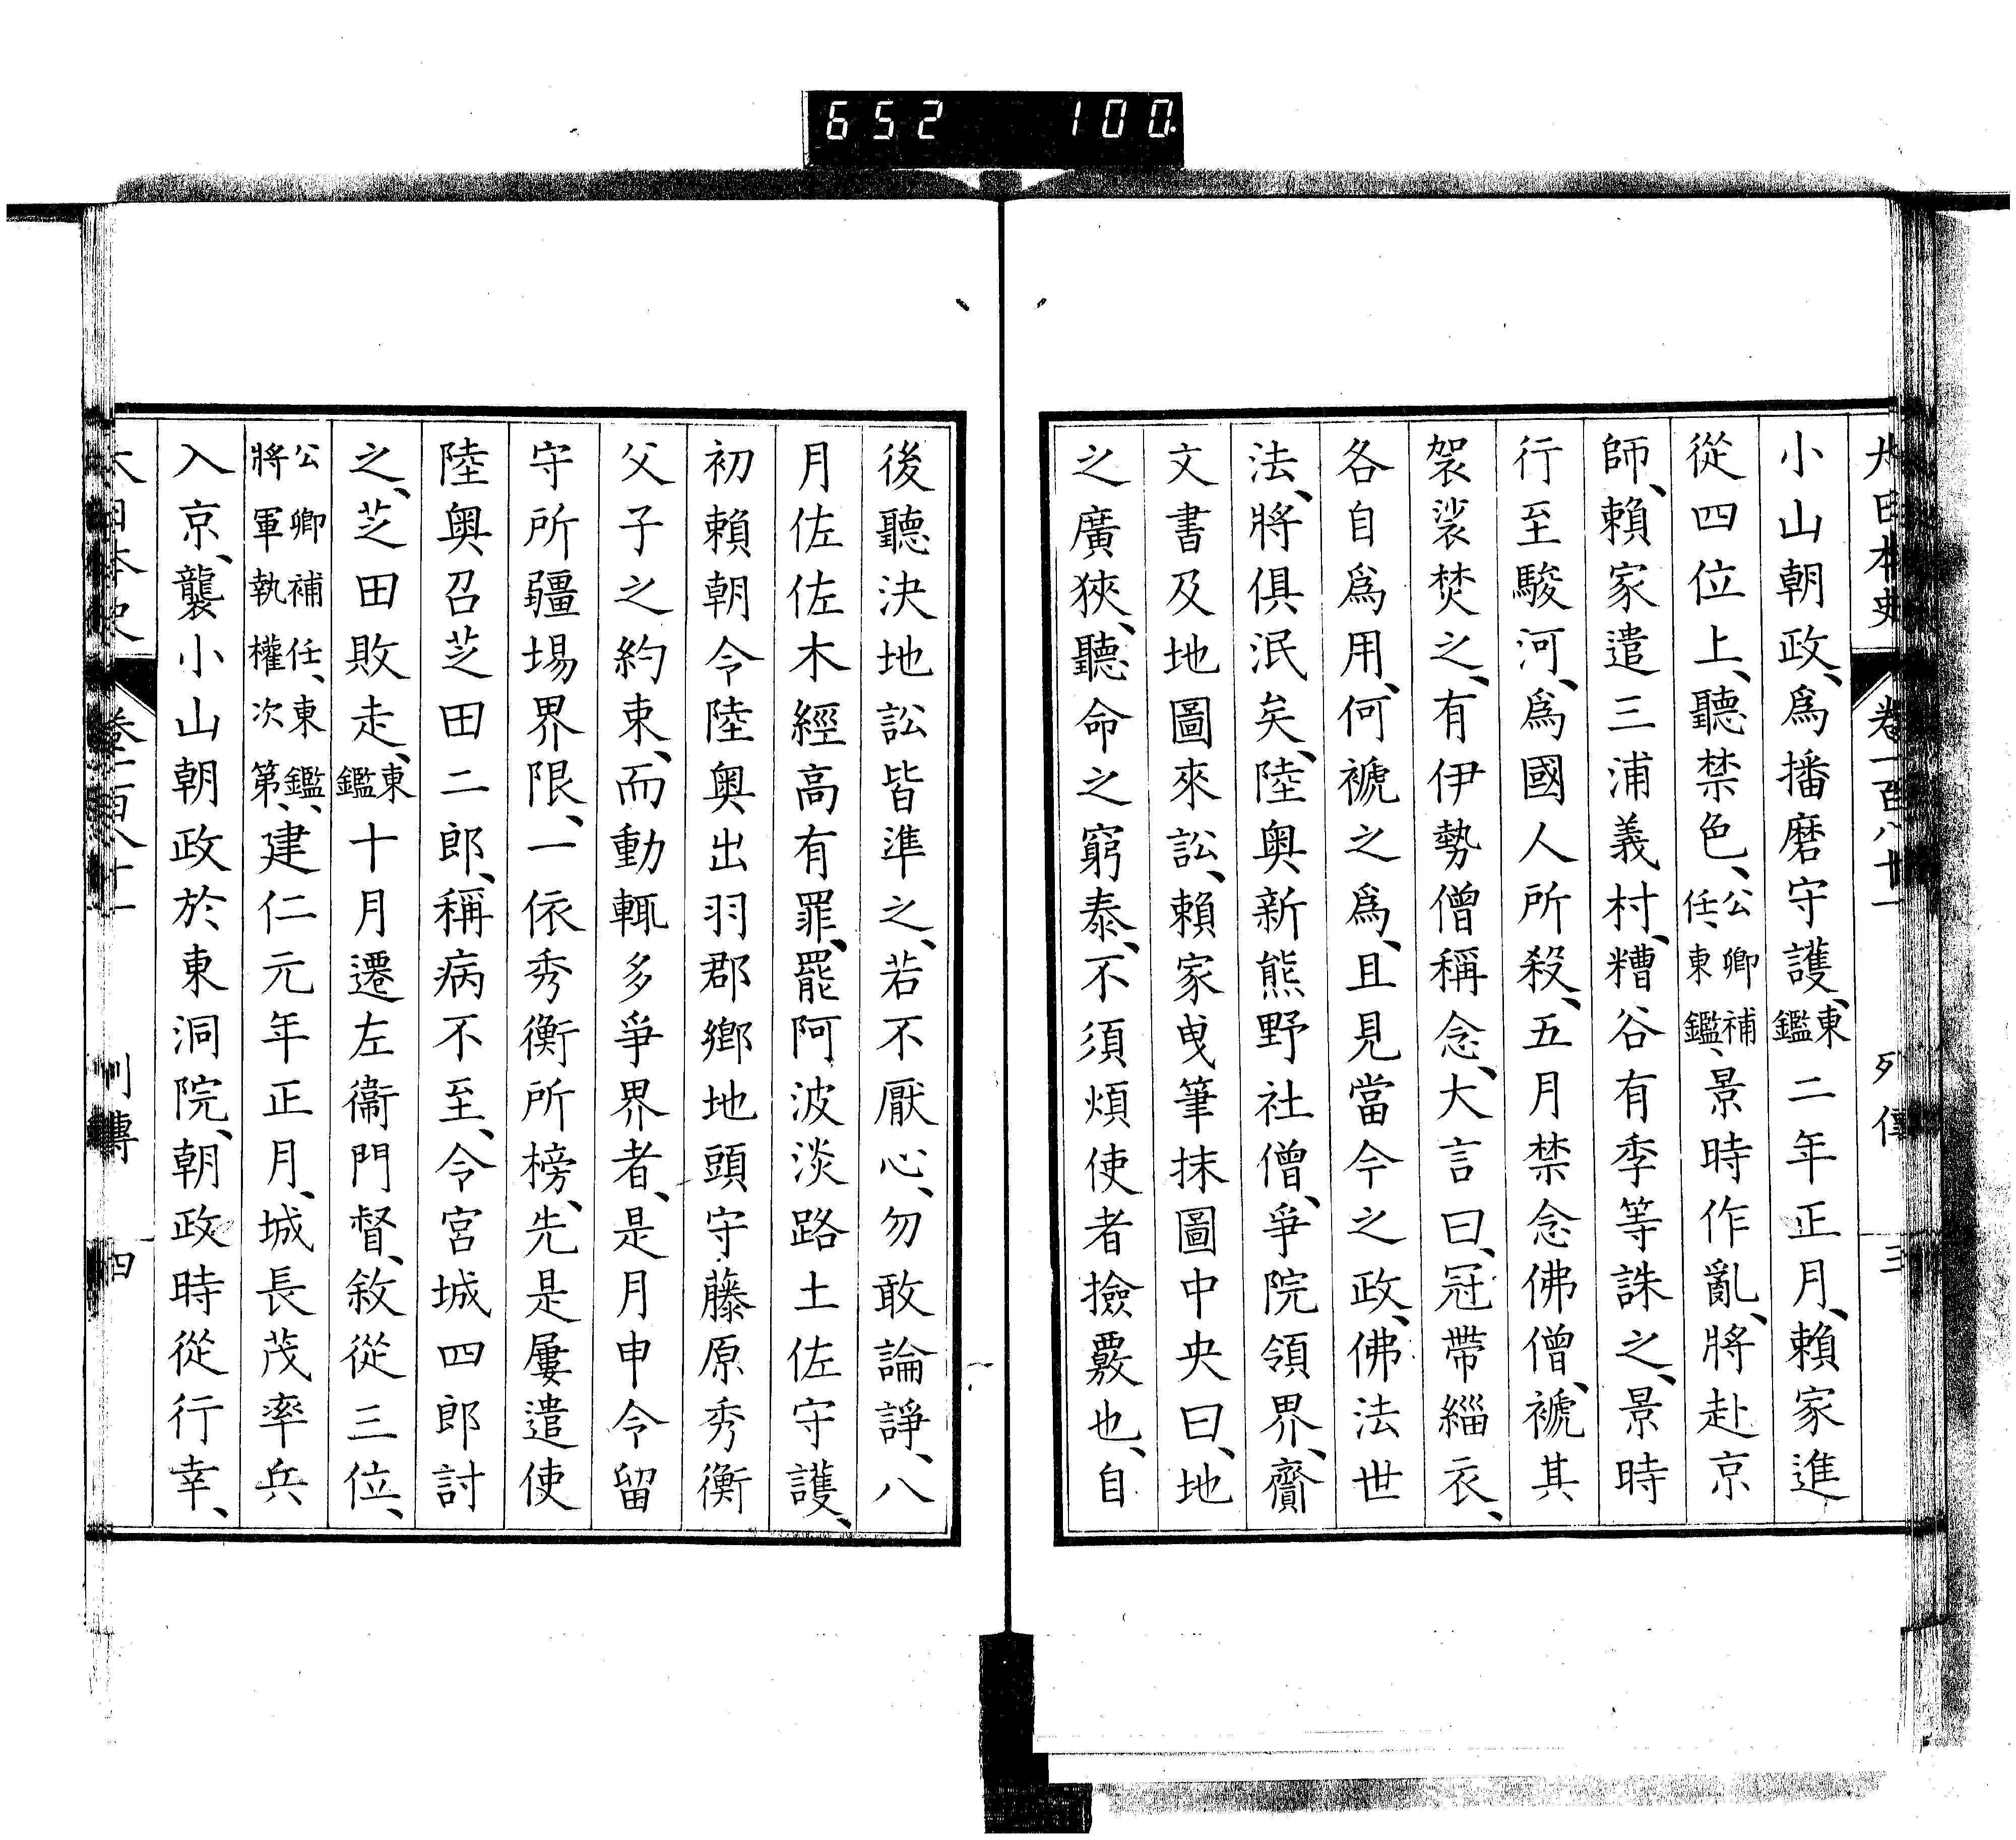 652 100
大日本史 卷一百八十一 列傳 三
小山朝政、爲播磨守護、東鑑二年正月、賴家進
從四位上、聽禁色、公卿補任、東鑑、景時作亂、將赴京
師、賴家遣三浦義村、糟谷有季等誅之、景時
行至駿河、爲國人所殺、五月禁念佛僧、褫其
袈裟焚之、有伊勢僧稱念、大言曰、冠帶緇衣、
各自爲用、何褫之爲、且見當今之政、佛法世
法、將俱泯矣、陸奧新熊野社僧、爭院領界、齎
文書及地圖來訟、賴家曳筆抹圖中央曰、地
之廣狹、聽命之窮泰、不須煩使者撿覈也、自
後聽決地訟皆準之、若不厭心、勿敢論諍、八
月佐佐木經高有罪、罷阿波淡路土佐守護、
初賴朝令陸奧出羽郡鄉地頭守藤原秀衡
父子之約束、而動輒多爭界者、是月申令留
守所疆場界限、一依秀衡所榜、先是屢遣使
陸奧召芝田二郎、稱病不至、令宮城四郎討
之、芝田敗走、東鑑十月遷左衞門督、敘從三位、
公卿補任、東鑑、將軍執權次第、建仁元年正月、城長茂率兵
入京、襲小山朝政於東洞院、朝政時從行幸、
大日本史 卷一百八十一 列傳 四